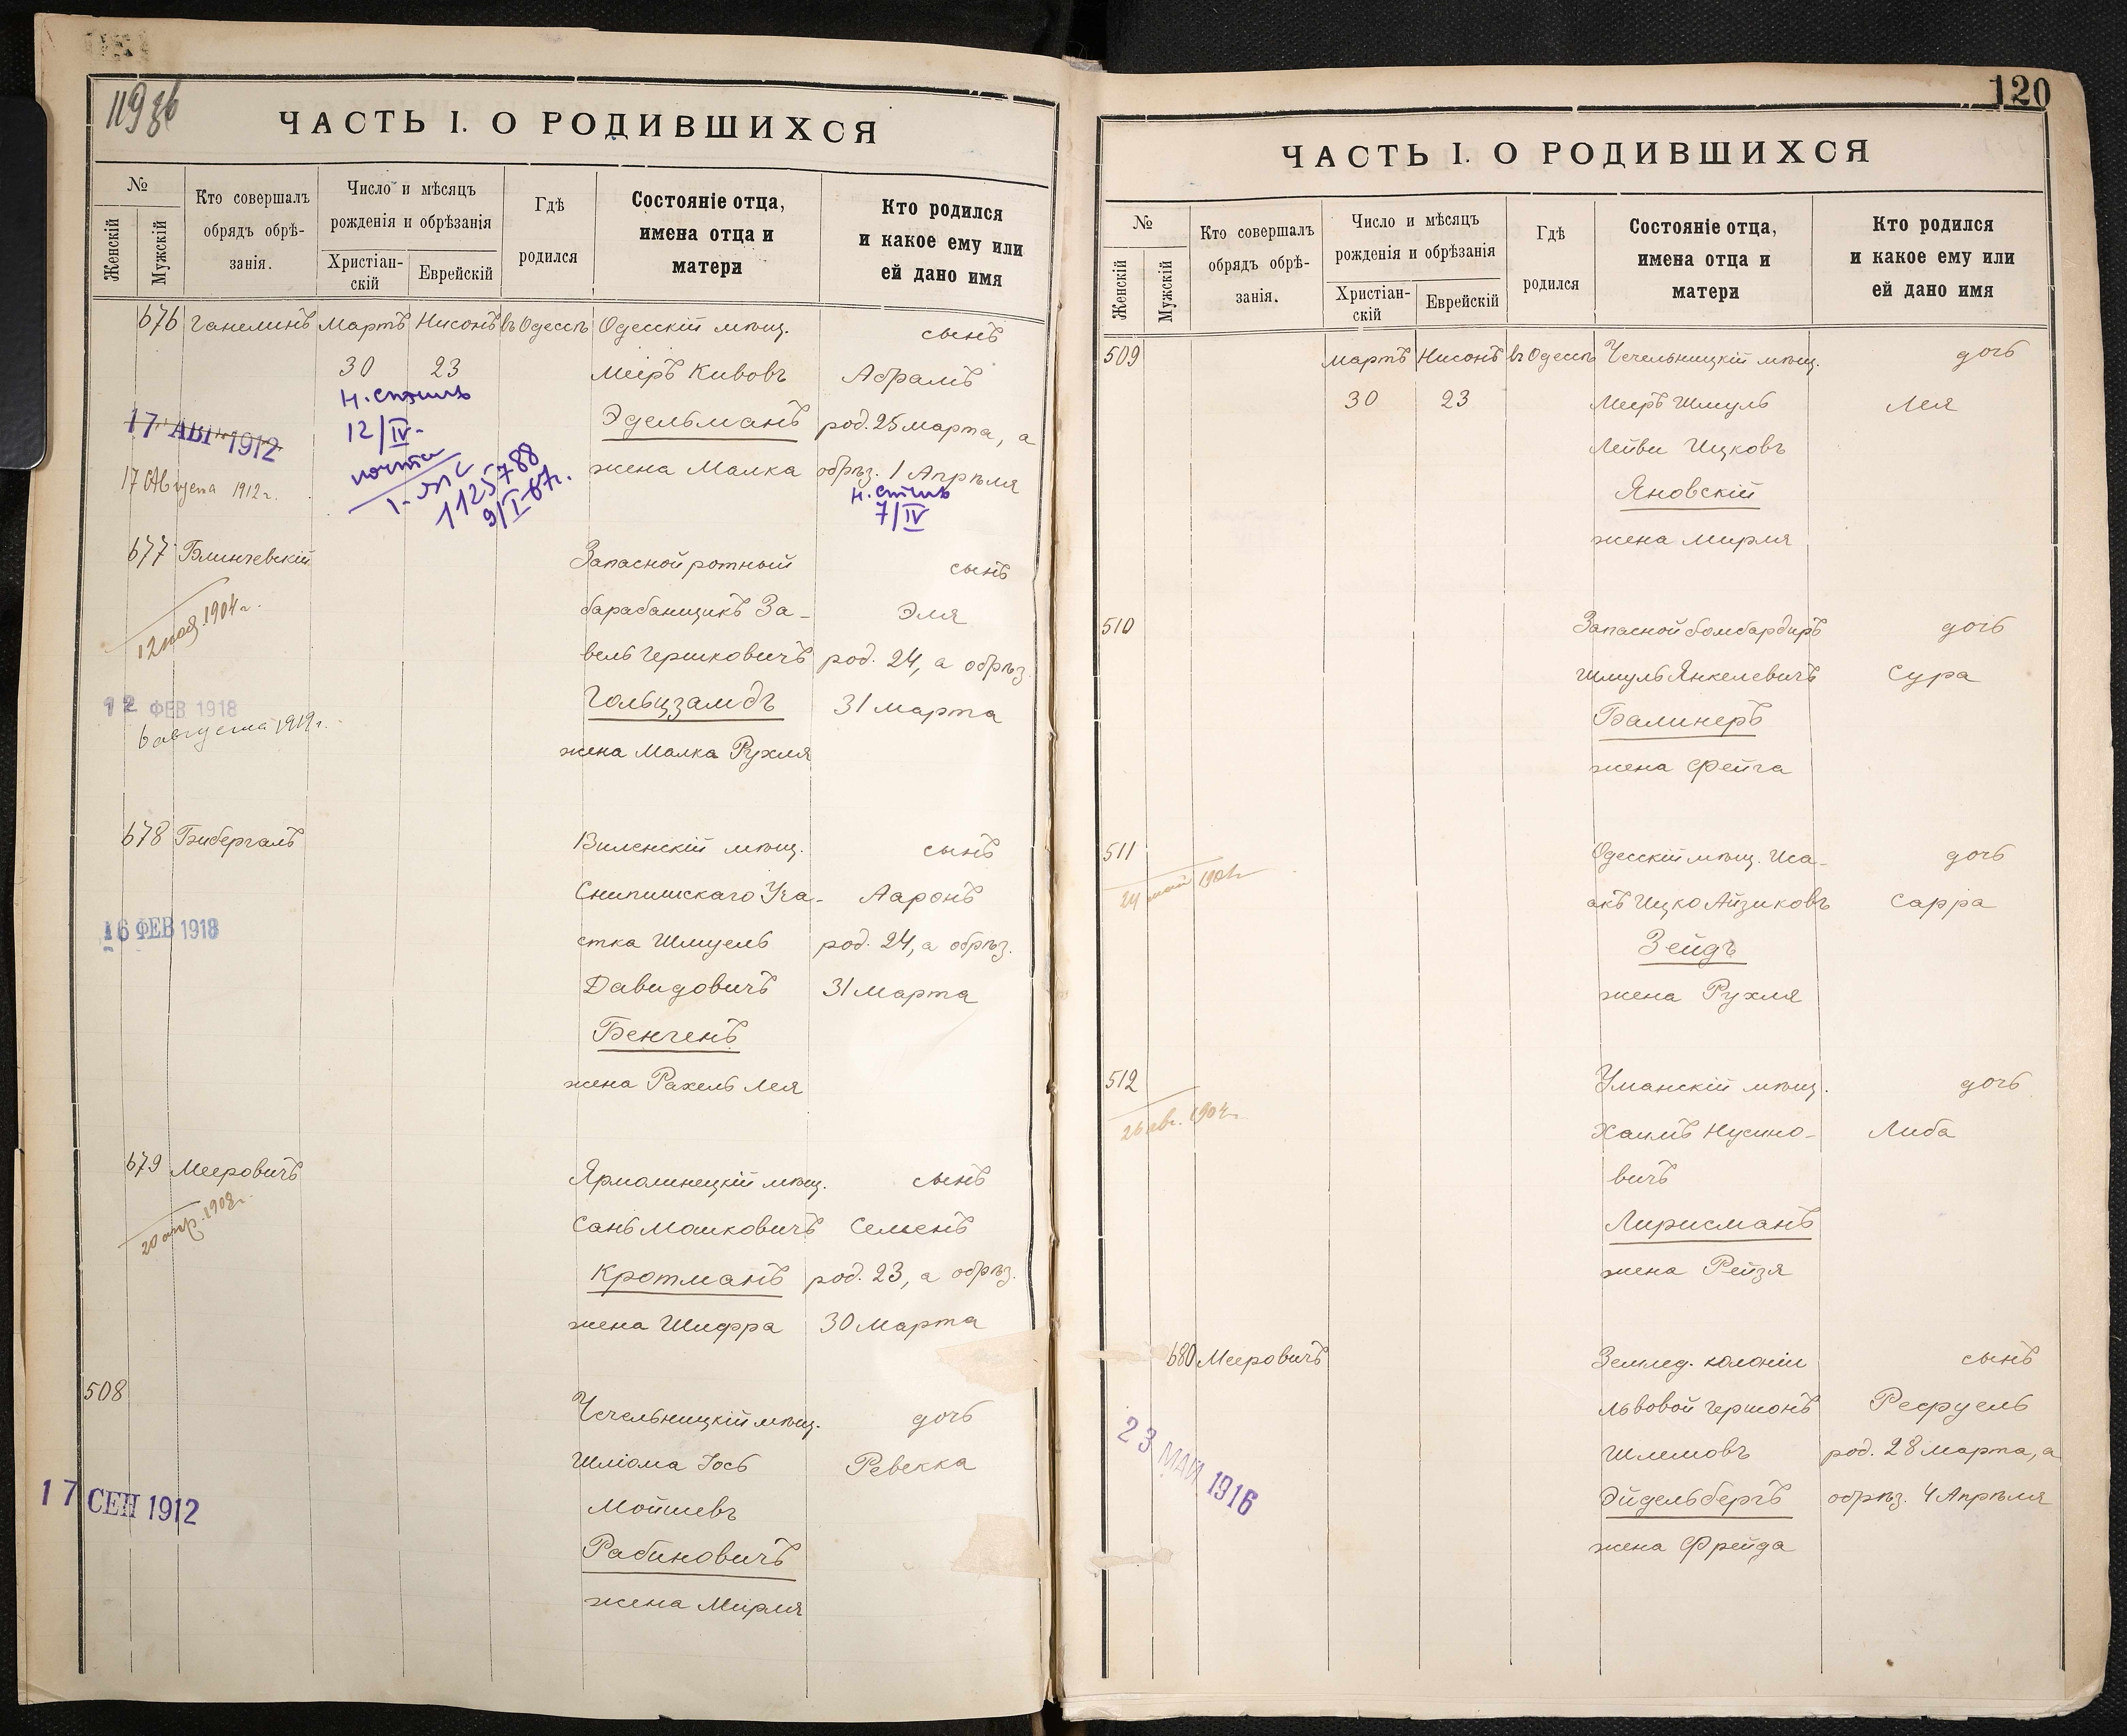 119 об
ЧАСТЬ I. О РОДИВШИХСЯ
№
Женскій
Мужскій
Кто совершалъ
обрядъ обрѣ-
занія.
Число и мѣсяцъ
рожденія и обрѣзанія
Христіан-
скій
Еврейскій
Гдѣ
родился
Состояніе отца,
имена отца и
матери
Кто родился
и какое ему или
ей дано имя
676 Ганелинъ Мартъ Нисонъ въ Одессѣ Одесскій мѣщ. сынъ
30 23 Меиръ Кивовъ Абрамъ
н. стиль
12/IV-
17 АВГ 1912
Эдельманъ род. 25 марта, а
17 Августа 1912 г.
жена Малка обрѣз. 1 Апрѣля
н. стиль
7/IV
почта
1125788
9/I-67г.
677 Блинчевскій Запасной ротный сынъ
12 ноя. 1904 г.
барабанщикъ За- Эля
вель Гершковичъ род. 24, а обрѣз.
12 ФЕВ 1918
Гольцзамдъ 31 марта
6 августа 1919 г.
жена Малка Рухля
678 Бибергалъ Виленскій мѣщ. сынъ
Снипишскаго Уча- Ааронъ
16 ФЕВ 1918
стка Шмуель род. 24, а обрѣз.
Давидовичъ 31 марта
Бенгенъ
жена Рахель Лея
679 Мееровичъ Ярмолинецкій мѣщ. сынъ
20 апр. 1908 г.
Сань Мошковичъ Семенъ
Кротманъ род. 23, а обрѣз.
жена Шифра 30 марта
508 Чечельницкій мѣщ. дочь
Шліома Іось Ревекка
17 СЕН 1912
Мойшевъ
Рабиновичъ
жена Мирля
120
ЧАСТЬ I. О РОДИВШИХСЯ
№
Женскій
Мужскій
Кто совершалъ
обрядъ обрѣ-
занія.
Число и мѣсяцъ
рожденія и обрѣзанія
Христіан-
скій
Еврейскій
Гдѣ
родился
Состояніе отца,
имена отца и
матери
Кто родился
и какое ему или
ей дано имя
509 Мартъ Нисонъ въ Одессѣ Чечельницкій мѣщ. дочь
30 23 Меиръ Шмуль Лея
Лейви Ицковъ
Яновскій
жена Мирля
510 Запасной бомбардиръ дочь
Шмуль Янкелевичъ Сура
Балинеръ
жена Фейга
511 Одесскій мѣщ. Иса- дочь
24 май 1904
акъ Ицко Айзиковъ Сарра
Зейдъ
жена Рухля
512 Уманскій мѣщ. дочь
26 авг. 1904
Хаимъ Нусино- Либа
вичъ
Лирисманъ
жена Рейзя
680 Мееровичъ Землед. колоніи сынъ
Львовой Гершонъ Рефуель
23 МАЯ 1916
Шлемовъ род. 28 марта, а
Эйдельбергъ обрѣз. 4 Апрѣля
жена Фрейда